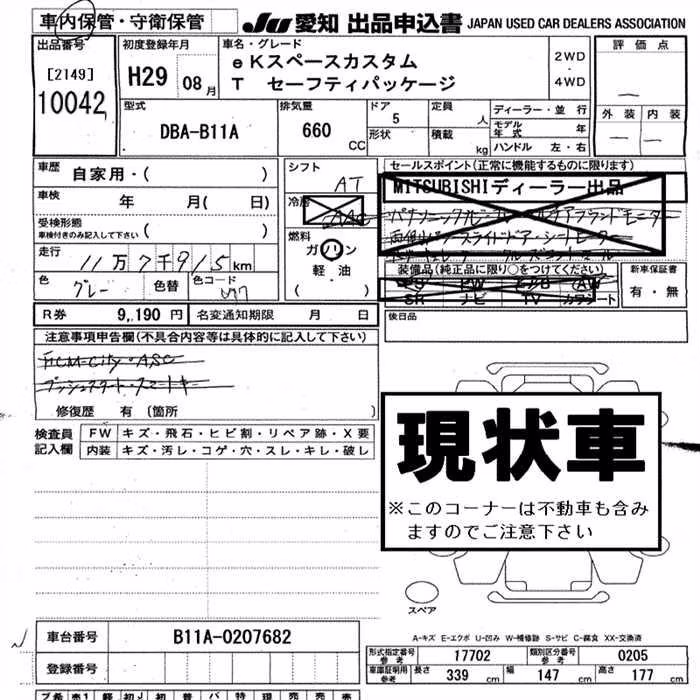 車内保管・守衛保管 JU 愛知 出品申込書 JAPAN USED CAR DEALERS ASSOCIATION
出品番号 初度登録年月 車名・グレード 評価点
[2149] H29 08月 eKスペースカスタム 2WD
10042 T セーフティパッケージ 4WD
外装 内装
型式 排気量 ドア 定員 ディーラー・並行
DBA-B11A 660 CC 5 人 モデル年式 年
形状 積載 kg ハンドル 左・右
車歴 自家用・( ) シフト AT セールスポイント(正常に機能するものに限ります)
車検 年 月( 日) 冷房 AAC MITSUBISHIディーラー出品
受検形態
車検付きのみ記入して下さい ( )
走行 11万7千915km 燃料 ガソリン
軽・油
( )
色 グレー 色替 色コード
装備品(純正品に限り○をつけてください) 新車保証書
PS PW エアB AW 有・無
SR ナビ TV カワシート
R券 9,190 円 名変通知期限 月 日 後日品
注意事項申告欄(不具合内容等は具体的に記入して下さい)
FCM-City・ASC
プッシュスタート・スマートキー
修復歴 有 (箇所 )
検査員 FW キズ・飛石・ヒビ割・リペア跡・X要
記入欄 内装 キズ・汚レ・コゲ・穴・スレ・キレ・破レ
現状車
※このコーナーは不動車も含み
ますのでご注意下さい
スペア
A-キズ E-エクボ U-凹み W-補修跡 S-サビ C-腐食 XX-交換済
車台番号 B11A-0207682
形式指定番号 参考 17702 類別区分番号 参考 0205
登録番号 車庫証明用 参考 長さ 339 cm 幅 147 cm 高さ 177 cm